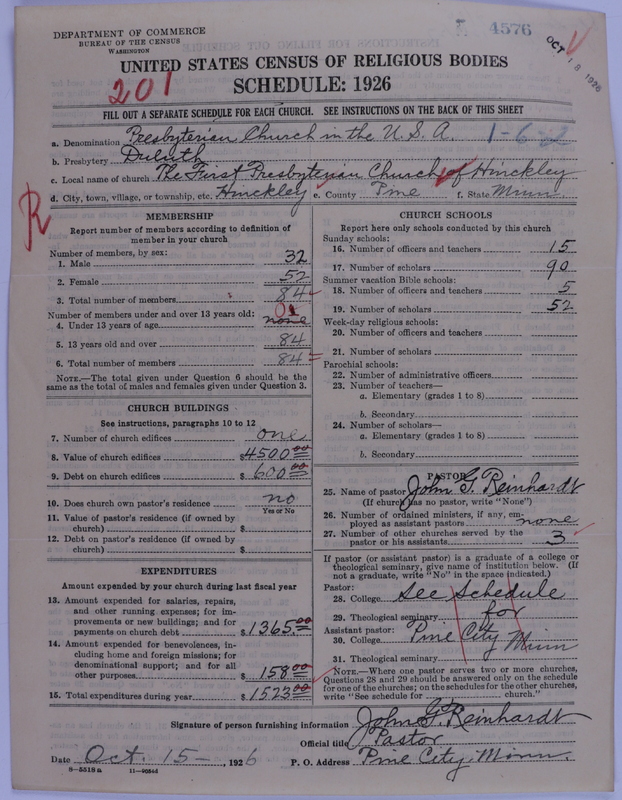 DEPARTMENT OF COMMERCE
BUREAU OF THE CENSUS
WASHINGTON
4576
OCT 18 1926
UNITED STATES CENSUS OF RELIGIOUS BODIES
201
SCHEDULE: 1926
FILL OUT A SEPARATE SCHEDULE FOR EACH CHURCH. SEE INSTRUCTIONS ON THE BACK OF THIS SHEET
a. Denomination Presbyterian Church in the U.S.A. 1-6-2
b. Presbytery Duluth
c. Local name of church The First Presbyterian Church of Hinckley
d. City, town, village, or township, etc. Hinckley e. County Pine f. State Minn.
R
MEMBERSHIP
Report number of members according to definition of
member in your church
Number of members, by sex:
1. Male 32
2. Female 52
3. Total number of members 84
Number of members under and over 13 years old: 0
4. Under 13 years of age none
5. 13 years old and over 84
6. Total number of members 84
NOTE.—The total given under Question 6 should be the
same as the total of males and females given under Question 3.
CHURCH BUILDINGS
See instructions, paragraphs 10 to 12
7. Number of church edifices one
8. Value of church edifices $4500.00
9. Debt on church edifices $600.00
10. Does church own pastor's residence no
Yes or No
11. Value of pastor's residence (if owned by
church) $
12. Debt on pastor's residence (if owned by
church) $
EXPENDITURES
Amount expended by your church during last fiscal year
13. Amount expended for salaries, repairs,
and other running expenses; for im-
provements or new buildings; and for
payments on church debt $1365.00
14. Amount expended for benevolences, in-
cluding home and foreign missions; for
denominational support; and for all
other purposes $158.00
15. Total expenditures during year $1523.00
CHURCH SCHOOLS
Report here only schools conducted by this church
Sunday schools:
16. Number of officers and teachers 15
17. Number of scholars 90
Summer vacation Bible schools:
18. Number of officers and teachers 5
19. Number of scholars 52
Week-day religious schools:
20. Number of officers and teachers
21. Number of scholars
Parochial schools:
22. Number of administrative officers
23. Number of teachers—
a. Elementary (grades 1 to 8)
b. Secondary
24. Number of scholars—
a. Elementary (grades 1 to 8)
b. Secondary
PASTOR
25. Name of pastor John G. Reinhardt
(If church has no pastor, write "None")
26. Number of ordained ministers, if any, em-
ployed as assistant pastors none
27. Number of other churches served by the
pastor or his assistants 3
If pastor (or assistant pastor) is a graduate of a college or
theological seminary, give name of institution below. (If
not a graduate, write "No" in the space indicated.)
Pastor:
28. College See Schedule
29. Theological seminary for
Assistant pastor:
30. College Pine City Minn
31. Theological seminary
NOTE.—Where one pastor serves two or more churches,
Questions 28 and 29 should be answered only on the schedule
for one of the churches; on the schedules for the other churches,
write "See schedule for church."
Signature of person furnishing information John G. Reinhardt
Official title Pastor
Date Oct. 15-, 1926 P. O. Address Pine City, Minn.
8-5518a 11-9054d